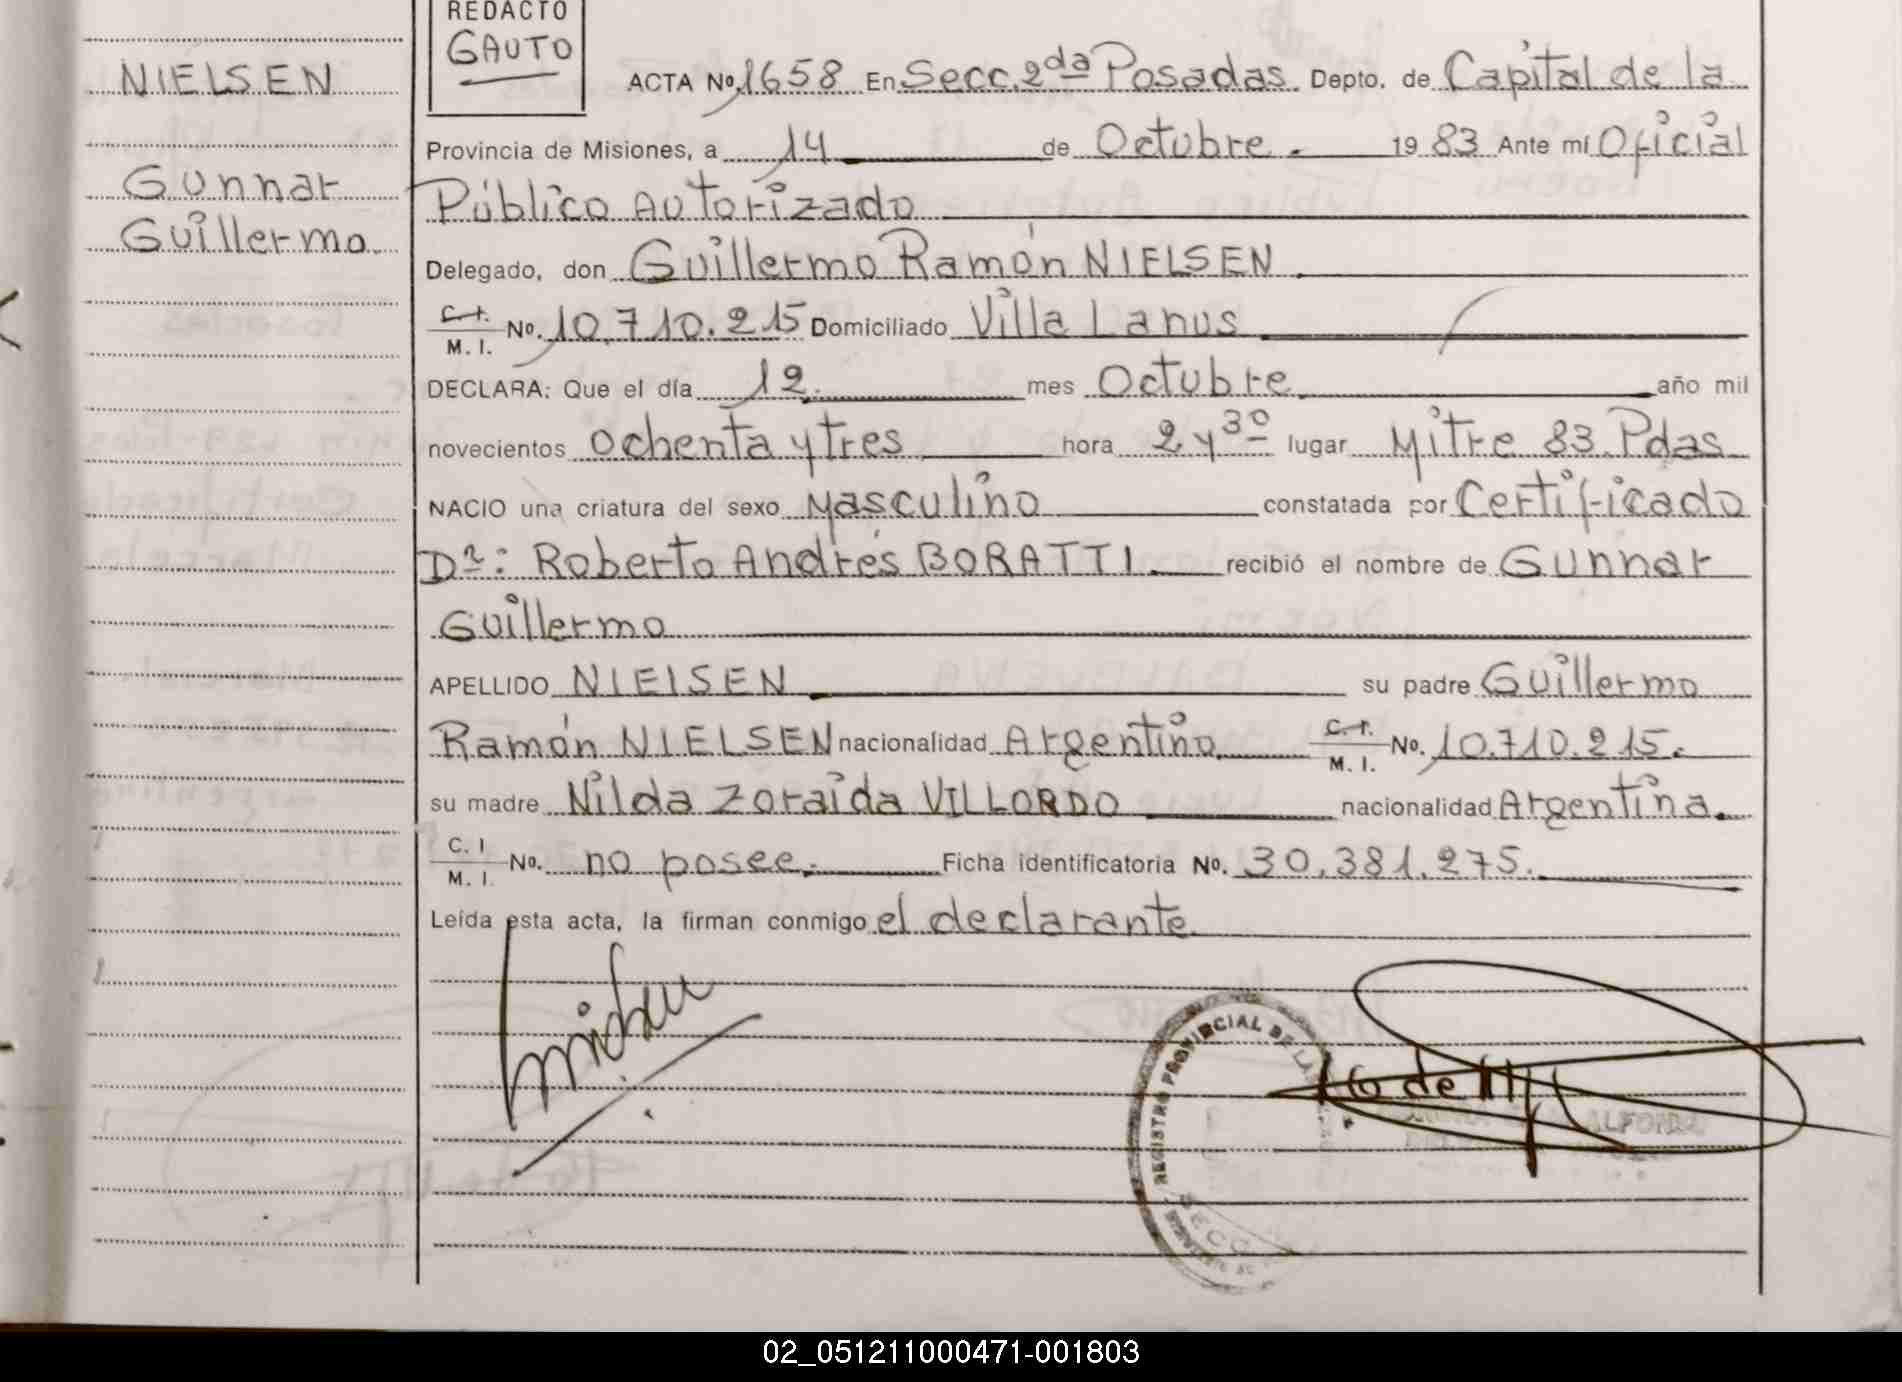 REDACTO
GAUTO
NIELSEN
Gunnar
Guillermo.
ACTA No. 1658 En Secc. 2da Posadas. Depto. de Capital de la
Provincia de Misiones, a 14 de Octubre. 1983 Ante mí Oficial
Público Autorizado
Delegado, don Guillermo Ramón NIELSEN.
C.I. M. I. No. 10.710.215 Domiciliado Villa Lanus
DECLARA: Que el día 12. mes Octubre. año mil
novecientos Ochenta y tres hora 2 y 30 lugar Mitre 83. Pdas
NACIO una criatura del sexo Masculino constatada por Certificado
Dr: Roberto Andrés BORATTI. recibió el nombre de Gunnar
Guillermo
APELLIDO NIELSEN su padre Guillermo
Ramón NIELSEN nacionalidad Argentino. C.I. M. I. No. 10.710.215.
su madre Nilda Zoraida VILLORDO nacionalidad Argentina.
C. I M. I. No. no posee. Ficha identificatoria No. 30.381.275.
Leída esta acta, la firman conmigo el declarante.
REGISTRO PROVINCIAL DE LA
ALFONSO
SECC
02_051211000471-001803